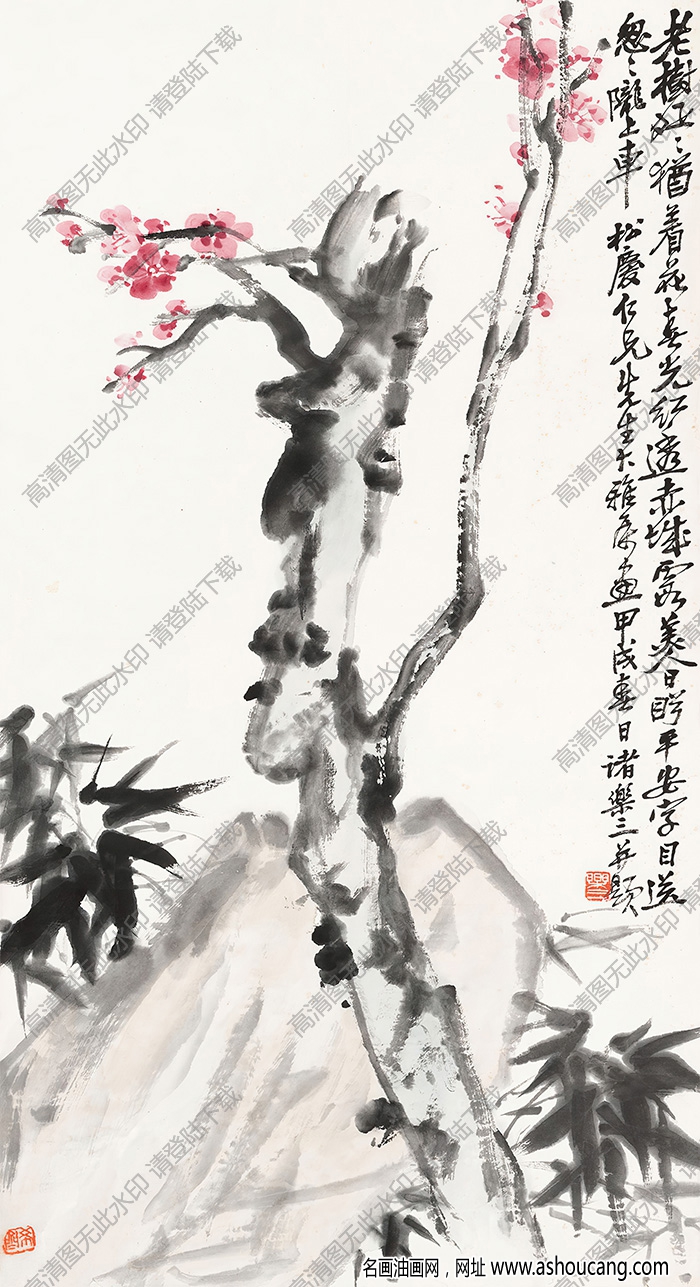 老樹猶着花春光紅透赤城霞美人日盻平安字目送
怱〻隴上車 松慶仁兄先生大雅屬畫甲戌春日諸樂三并題
高清图无此水印 请登陆下载
名画油画网，网址 www.ashoucang.com